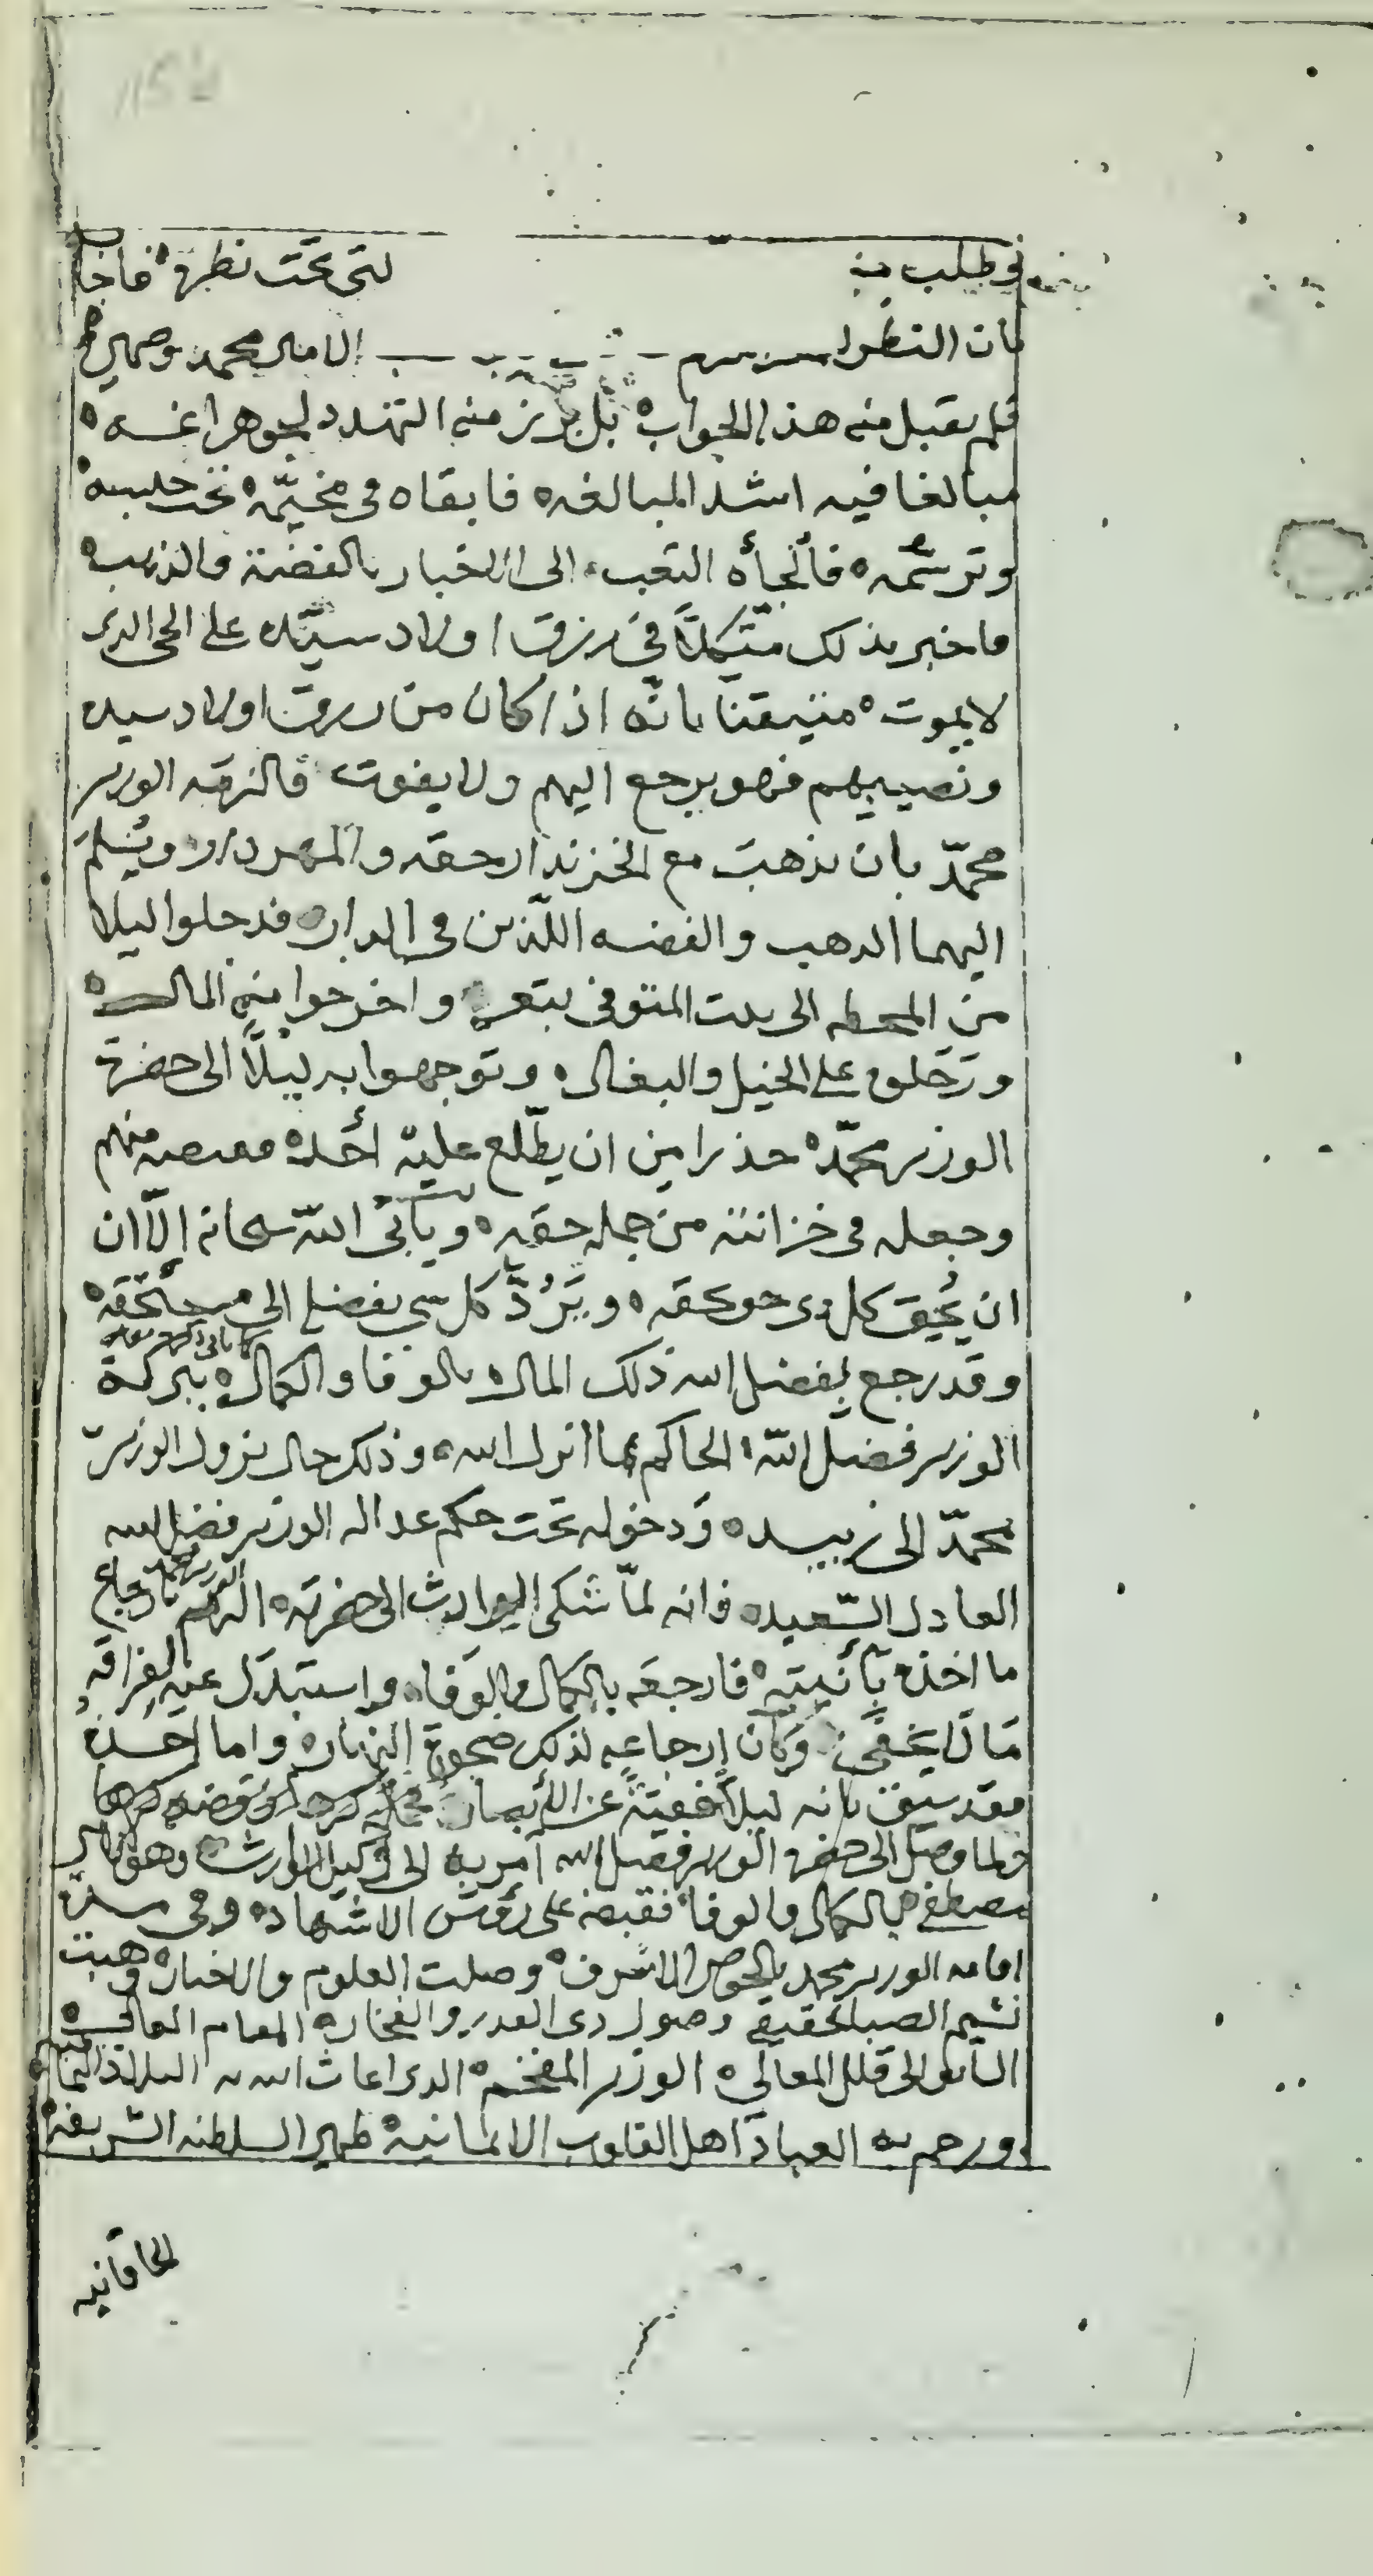 في طلب منه لتي تحت نظره فاجا
بان النظر الامير محمد
فلم يقبل منه هذا الجواب بل برز منه التهدد
مبالغا فيه اشد المبالغه فابقاه في مخيّمه تحت حبسه
وترسّمه فألجأه التعب الى الاخبار بالفضة والذهب
فاخبر بذلك متّكلاً في رزق اولاد سيّده على الحي الذي
لا يموت متيقنا بانّه اذا كان من رزق اولاد سيده
ونصيبهم فهو يرجع اليهم ولا يفوت فالزمه الوزير
محمدّ بان يذهب مع الخزندار حقه والمهردار ويُسلّم
اليهما الدهب والفضه اللّذين في الدار فدخلوا ليلا
من المحطه الى بيت المتوفى بتعز واخرجوا منه المال
وتحملوه على الخيل والبغال وتوجهوا به ليلاً الى حضرة
الوزير محمّد حذرا من ان يطّلع عليه أحد فقبضه منهم
وجعله في خزانته من جمله حقه ويأبى اللّه سبحانه إلاّ ان
ان يُحِق كل ذي حق حقه ويَرُدَّ كل شي بفضله الى مستحقه
وقد رجع بفضل الله ذلك المال بالوفا والكمال ببركة
الوزير فضل اللّه الحاكم بما انزل الله وذلك حال نزول الوزير
محمدّ الى زبيد ودخوله تحت حكم عداله الوزير فضل الله
العادل السّعيد فانه لمّا شكى الوارث الى حضرته الزم الوزير محمد بارجاع
ما اخذه فارجعه بالكمال والوَفا واستبدل عنه
مَا لَا يخفى وكان إرجاعه لذلك ضحوة النهار واما اخذه
فقد سبق بانه ليلا خفيّة عن الأبصار
فلما وصل الى حضرة الوزير فضل الله أمر به الى وكيل الوارث وهو الامير
مصطفى بالكمال والوفا فقبضه على رؤس الاشهاد وفي مدة
اقامه الوزير محمد وصلت العلوم والاخبار وهبت
نسيم الصبا بحقيقة وصول ذي القدر والفخار المقام العالي
السابق الى قلل المعالي الوزير المفخم الذي اغاث الله به البلاد اليمانيه
ورحم به العباد اهل القلوب الايمانية ظهير السلطنه الشريفة
الخاقانيه